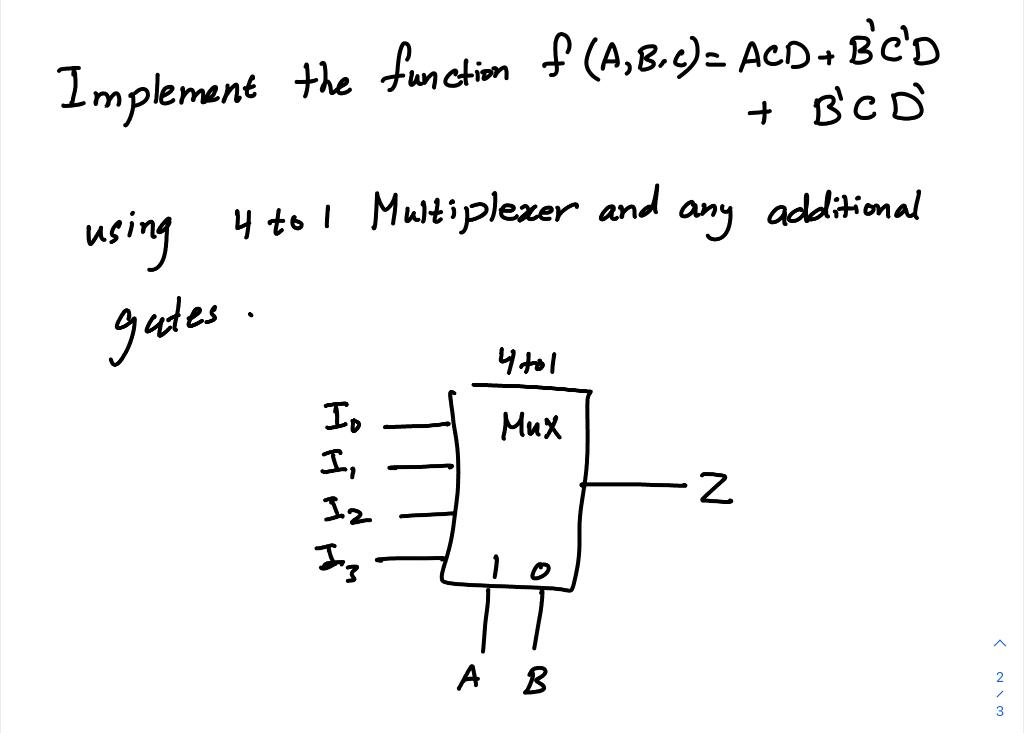 Implement the function f (A,B,C) = ACD + B'C'D
+ B'CD'
using 4 to 1 Multiplexer and any additional
gates.
4 to 1
Mux
I0
I1
I2
I3
Z
1 0
A B
2
/
3